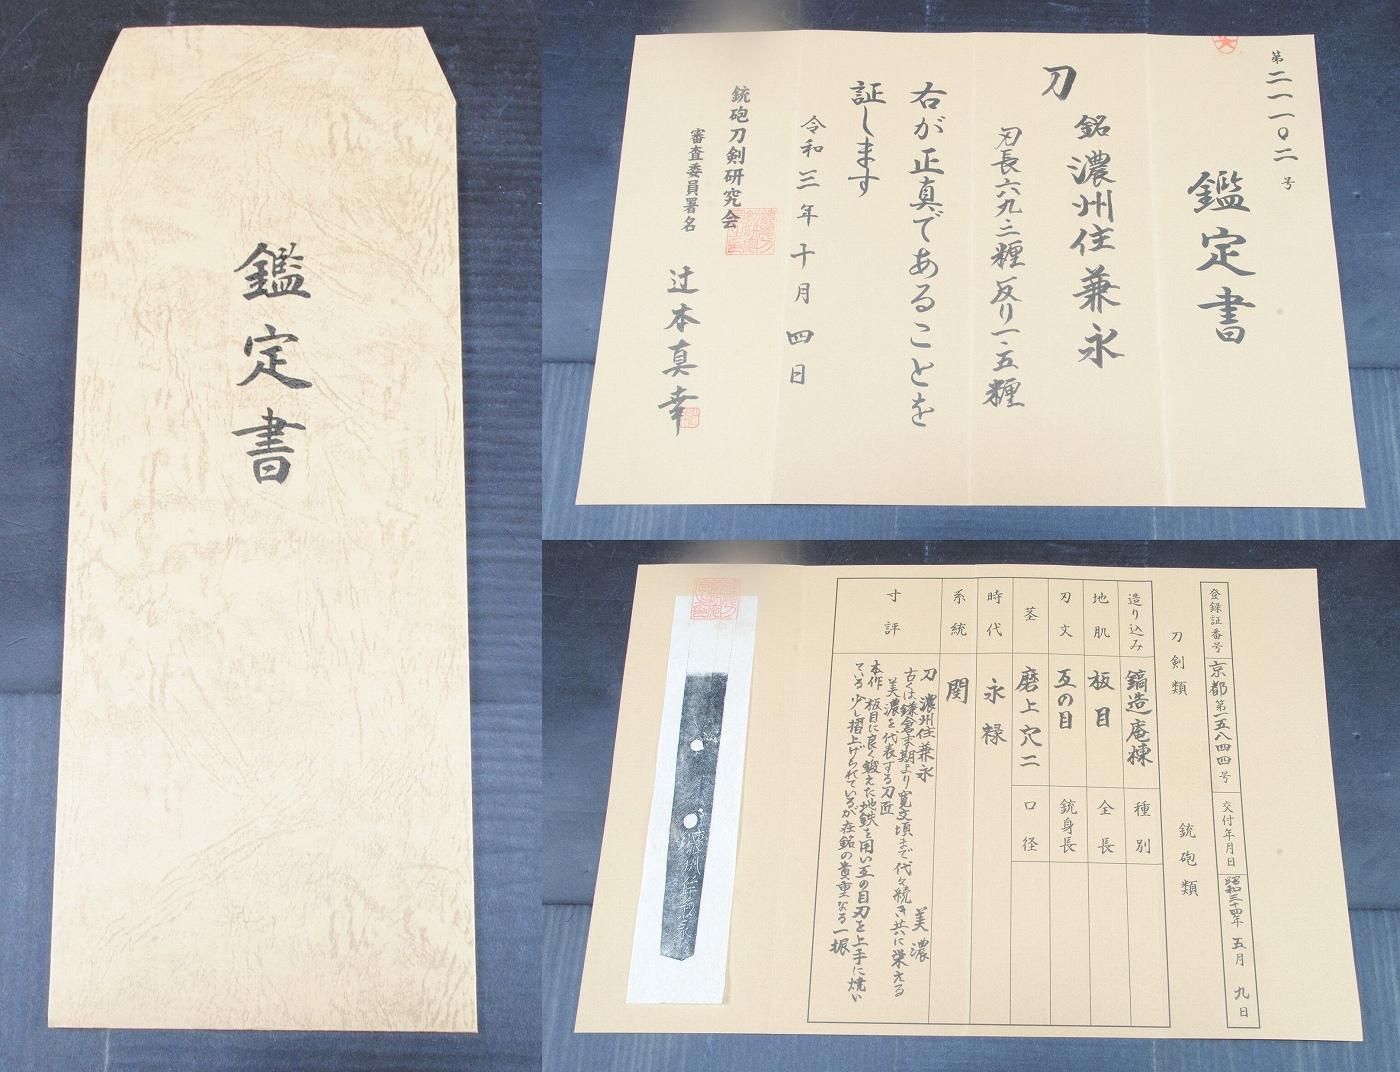 鑑定書
第二一一〇二号
鑑定書
刀
銘 濃州住兼永
刃長六九.三糎 反り一.五糎
右が正真であることを
証します
令和三年十月四日
銃砲刀剣研究会
審査委員署名
辻本真幸
登録証番号 京都第一五八四四号 交付年月日 昭和三十四年五月九日
刀剣類 銃砲類
造り込み 鎬造庵棟 種別
地肌 板目 全長
刃文 互の目 銃身長
茎 磨上穴二 口径
時代 永禄
系統 関
寸評
刀 濃州住兼永 美濃
古くは鎌倉末期より寛文頃まで代々続き共に栄える
美濃を代表する刀匠
本作 板目に良く鍛えた地鉄を用い互の目刃を上手に焼い
ている 少し摺上げられているが在銘の貴重なる一振
濃州住兼永